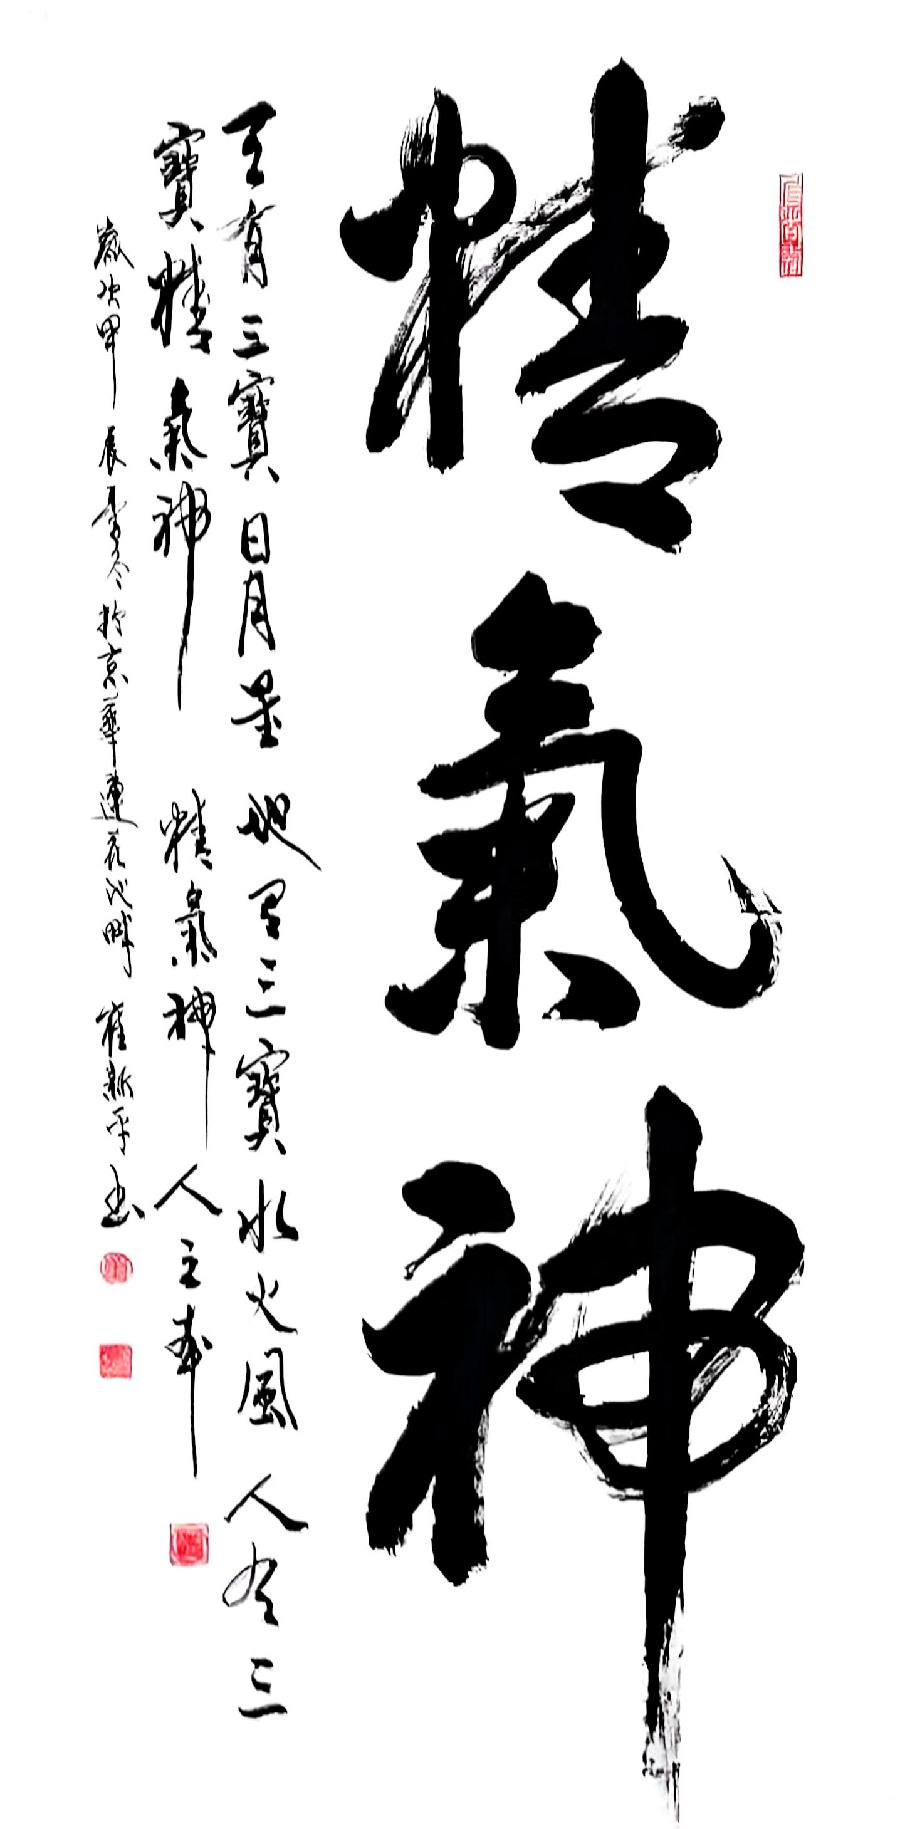 精氣神
天有三寶日月星地有三寶水火風人有三
寶精氣神精氣神人之本
歲次甲辰季冬於京華蓮花池畔崔新平書